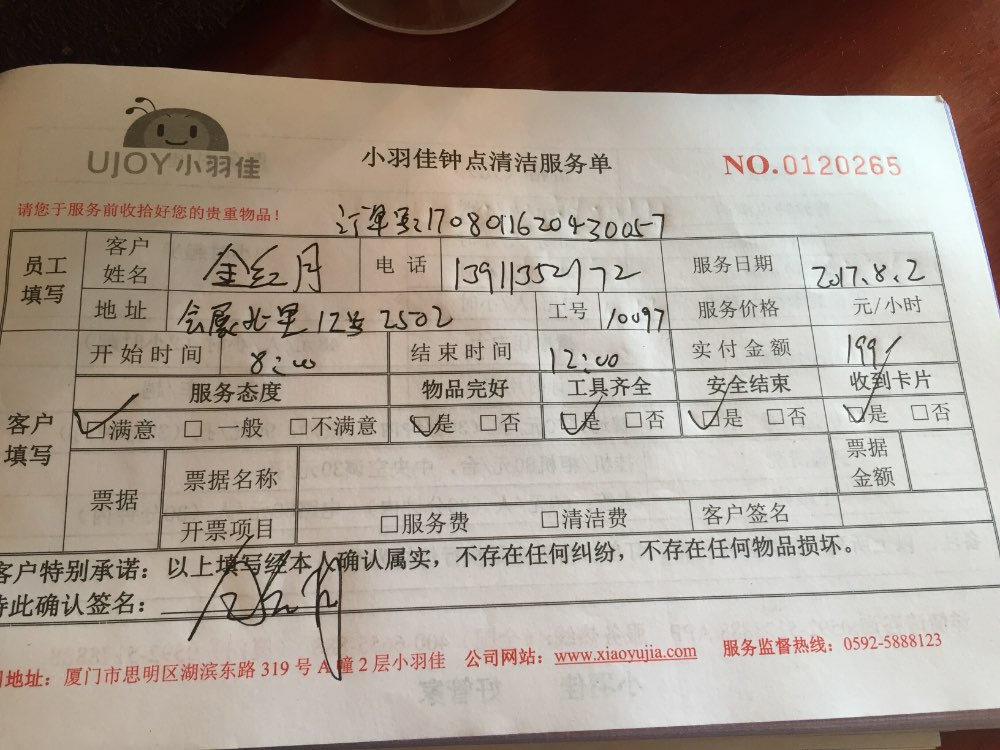 UJOY小羽佳
小羽佳钟点清洁服务单
NO.0120265
请您于服务前收拾好您的贵重物品！
订单号:170801620430057
员工填写 客户姓名 金红月 电话 13911352172 服务日期 2017.8.2
地址 会展北里12号2502 工号 10097 服务价格 元/小时
开始时间 8:00 结束时间 12:00 实付金额 199/
客户填写 服务态度 物品完好 工具齐全 安全结束 收到卡片
☑满意 □一般 □不满意 ☑是 □否 ☑是 □否 ☑是 □否 ☑是 □否
票据 票据名称 票据金额
开票项目 □服务费 □清洁费 客户签名
客户特别承诺：以上填写经本人确认属实，不存在任何纠纷，不存在任何物品损坏。
特此确认签名：
地址：厦门市思明区湖滨东路319号A幢2层小羽佳 公司网站：www.xiaoyujia.com 服务监督热线：0592-5888123